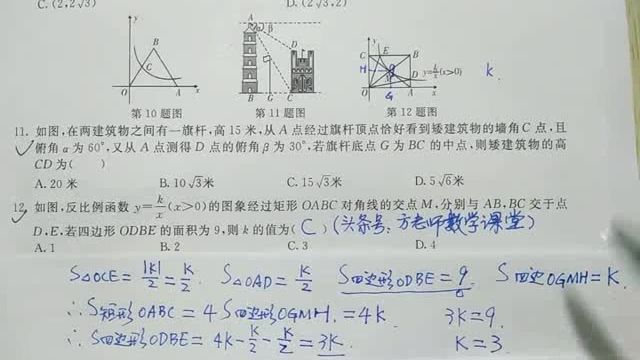 C. (2,2√3) D. (2√3,2)
y B C O A x
A α β D B G C
y C E B H D y=k/x(x>0) O G A x k.
第10题图 第11题图 第12题图
11. 如图,在两建筑物之间有一旗杆,高15米,从A点经过旗杆顶点恰好看到矮建筑物的墙角C点,且
俯角α为60°,又从A点测得D点的俯角β为30°,若旗杆底点G为BC的中点,则矮建筑物的高
CD为( )
A. 20米 B. 10√3米 C. 15√3米 D. 5√6米
12. 如图,反比例函数 y=k/x(x>0)的图象经过矩形OABC对角线的交点M,分别与AB,BC交于点
D,E,若四边形ODBE的面积为9,则k的值为( C )(头条号:方老师数学课堂)
A. 1 B. 2 C. 3 D. 4
S△OCE=|k|/2=k/2. S△OAD=k/2 S四边形ODBE=9. S四边OGMH=k.
∴S矩形OABC=4S四边形OGMH=4k. 3k=9.
∴S四边形ODBE=4k-k/2-k/2=3k. k=3.